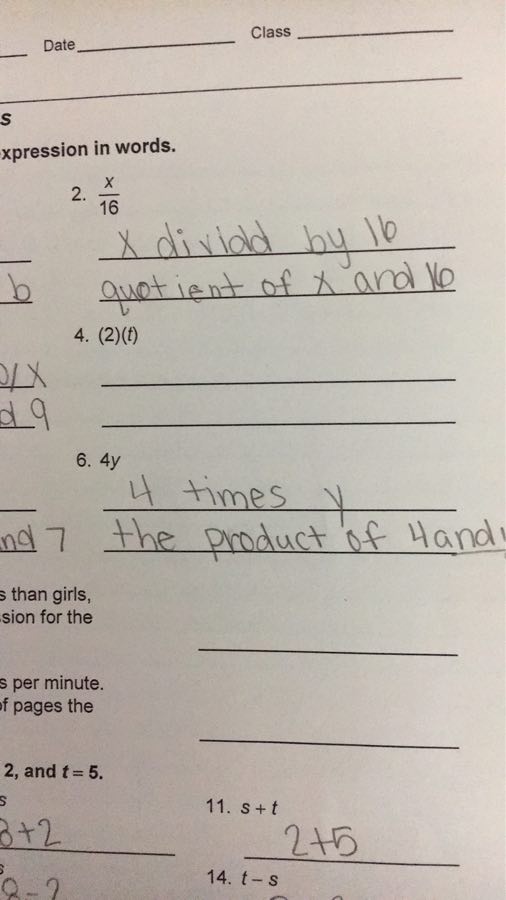 Date Class
s
xpression in words.
2. x/16
x dividd by 16
b quotient of x and 16
4. (2)(t)
0/x
d 9
6. 4y
4 times y
nd 7 the product of 4 and
s than girls,
sion for the
s per minute.
of pages the
2, and t = 5.
s 11. s + t
8+2 2+5
s 14. t – s
8-2